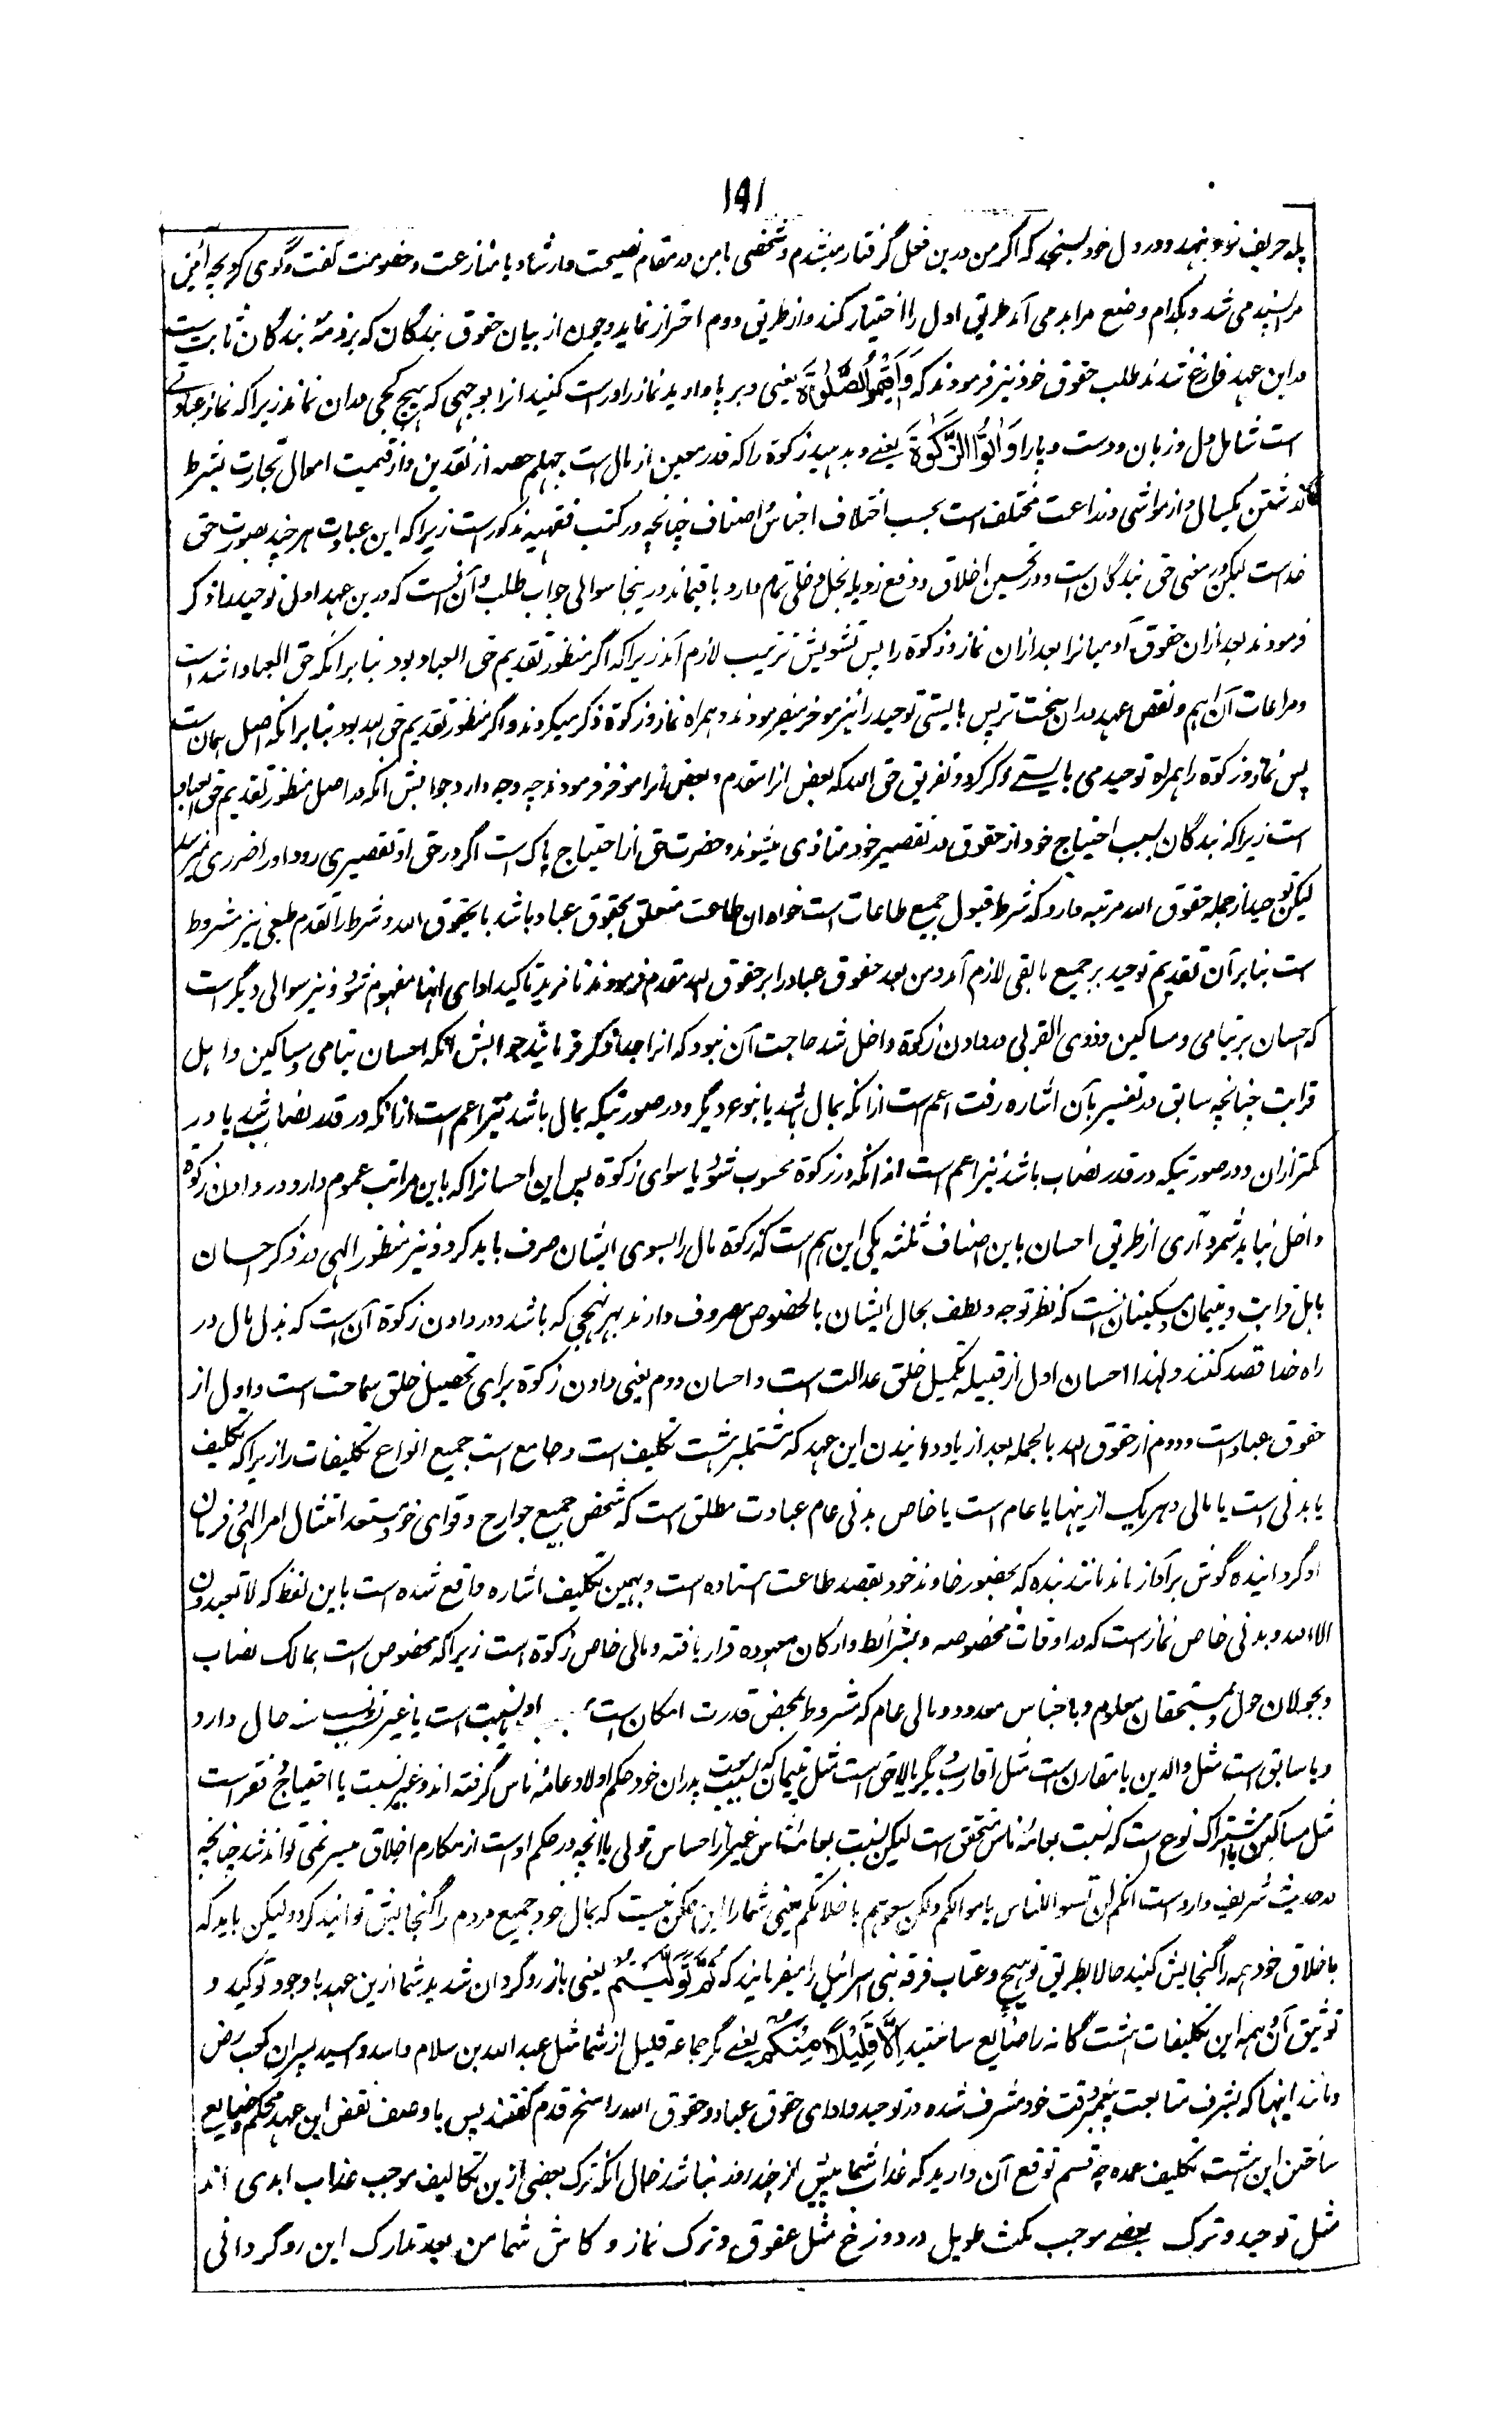 ۱۹۱
پله حریف خود بنهد و در دل خود بسنجد که اگر من درین فعل گرفتار میشدم و شخصی با من در مقام نصیحت و ارشاد یا منازعت و خصومت گفت و گوی کردی بچه آئین
مرا پسند می شد و بکدام وضع مرا بد می آمد طریق اول را اختیار کند و از طریق دوم احتراز نماید و چون از بیان حقوق بندگان که بر ذمهٔ بندگان ثابت است
در این عهد فارغ شدند طلب حقوق خود نیز فرمودند که وَاَقِیْمُوا الصَّلٰوةَ یعنی و بر پا دارید نماز را و راست کنید آنرا بوجهی که هیچ کجی در ان نماند زیرا که نماز عبادتی
است شامل دل و زبان و دست و پا را وَاٰتُوا الزَّکٰوةَ یعنے و بدهید زکوة را که قدر معین از مال است چهلم حصه از نقدین و از قیمت اموال تجارت بشرط
گذشتن یکسال و از مواشی و زراعت مختلف است بحسب اختلاف اجناس و اصناف چنانچه در کتب فقهیه مذکور است زیرا که این عبادت هر چند بصورت حق
خداست لیکن در معنی حق بندگان است و در تحسین اخلاق و دفع رذیله بخل دخلی تمام دارد باقیماند درینجا سوالی جواب طلب و آن آنست که درین عهد اول توحید را ذکر
فرمودند بعد ازان حقوق آدمیانرا بعد ازان نماز و زکوة را پس تشویش ترتیب لازم آمد زیرا که اگر منظور تقدیم حق العباد بود بنا بر آنکه حق العباد اشد است
و مراعات آن اهم و نقض عهد در ان سخت تر پس بایستی توحید را نیز موخر میفرمودند و همراه نماز و زکوة ذکر میکردند و اگر منظور تقدیم حق الله بود بنا بر آنکه اصل همان است
پس نماز و زکوة را همراه توحید می بایستے ذکر کرد و تفریق حق الله که بعض آنرا مقدم و بعض آنرا موخر فرمودند چه وجه دارد جوابش آنکه در اصل منظور تقدیم حق العباد
است زیرا که بندگان بسبب احتیاج خود از حقوق در تقصیر خود متاذی میشوند و حضرت حق از احتیاج پاک است اگر در حق او تقصیری رود او را ضرری نمیرسد
لیکن توحید از جمله حقوق الله مرتبه دارد که شرط قبول جمیع طاعات است خواه ان طاعت متعلق بحقوق عباد باشد یا بحقوق الله و شرط را تقدم طبعی نیز بر مشروط
است بنا بر آن تقدیم توحید بر جمیع مابقی لازم آمد و من بعد حقوق عباد را بر حقوق الله مقدم فرمودند تا مزید تاکید ادای اینها مفهوم شود و نیز سوالی دیگر است
که احسان بر یتامی و مساکین و ذوی القربی در دادن زکوة داخل شد حاجت آن نبود که آنرا جدا ذکر فرمایند جوابش آنکه احسان یتامی و مساکین و اهل
قرابت چنانچه سابق در تفسیر بآن اشاره رفت اعم است از آنکه بمال باشد یا بنوع دیگر و در صورتیکه بمال باشد نیز اعم است از آنکه در قدر نصاب باشد یا در
کمتر ازان و در صورتیکه در قدر نصاب باشد نیز اعم است از آنکه در زکوة محسوب شود یا سوای زکوة پس این احسانرا که باین مراتب عموم دارد در دادن زکوة
داخل نباید شمرد آری از طریق احسان باین اصناف ثلثه یکی این هم است که زکوة مال را بسوی ایشان صرف باید کرد و نیز منظور الهی در ذکر احسان
باهل قرابت و یتیمان و مسکینان آنست که نظر توجه و لطف بحال ایشان بالخصوص مصروف دارند بهر نهجی که باشد و در دادن زکوة آن است که بذل مال در
راه خدا قصد کنند و لهذا احسان اول از قبیله تکمیل خلق عدالت است و احسان دوم یعنی دادن زکوة برای تحصیل خلق سماحت است و اول از
حقوق عباد است و دوم از حقوق الله بالجمله بعد از یاد دهانیدن این عهد که مشتمل بر هشت تکلیف است و جامع است جمیع انواع تکلیفات را زیرا که تکلیف
یا بدنی است یا مالی و هر یک ازینها یا عام است یا خاص بدنی عام عبادت مطلق است که شخص جمیع جوارح و قوای خود مستعد امتثال امر الهی و فرمان
او گردانیده گوش بر آواز ماند مانند بنده که بحضور خاوند خود بقصد طاعت استاده است و بهمین تکلیف اشاره واقع شده است باین لفظ که لا تعبدون
الا الله و بدنی خاص نماز است که در اوقات مخصوصه و بشرائط و ارکان معهوده قرار یافته و مالی خاص زکوة است زیرا که مخصوص است بمالک نصاب
و بحولان حول و بمستحقان معلوم و باجناس معدود و مالی عام که مشروط بمحض قدرت امکان است یا نسبت است یا غیر نسبت حال دارد
و یا سابق است مثل والدین یا مقارن است مثل اقارب دیگر یا لاحق است مثل یتیمان که بسبب موت پدران خود حکم اولاد عامهٔ ناس گرفته اند و غیر نسبت یا احتیاج و فقر است
مثل مساکین یا اشتراک نوع است که نسبت بعامهٔ ناس متحقق است لیکن نسبت بعامهٔ ناس غیر از احسان قولی یا آنچه در حکم اوست از مکارم اخلاق میسر نمی تواند شد چنانچه
در حدیث شریف وارد است انکم لن تسعوا الناس باموالکم ولکن سعوهم باخلاقکم یعنی شما را این ممکن نیست که بمال خود جمیع مردم را گنجایش توانید کرد و لیکن باید که
باخلاق خود همه را گنجایش کنید حالا بطریق توبیخ و عتاب فرقه بنی اسرائیل را میفرمایند که ثُمَّ تَوَلَّیْتُمْ یعنی باز روگردان شدید شما ازین عهد با وجود توکید و
توثیق آن و همه این تکلیفات هشت گانه را ضایع ساختید اِلَّا قَلِیْلًا مِّنْکُمْ یعنے مگر جماعه قلیل از شما مثل عبد الله بن سلام و اسد و اسید پسران کعب رض
و مانند اینها که بشرف متابعت پیغمبر وقت خود مشرف شده در توحید و ادای حقوق عباد و حقوق الله راسخ قدم گفتند پس با وصف نقض این عهد محکم و ضایع
ساختن این هشت تکلیف عمده چه قسم توقع آن دارید که عذاب شما بیش از چند روز نباشد حال آنکه ترک بعضی ازین تکالیف موجب عذاب ابدی اند
مثل توحید و ترک بعضے موجب مکث طویل در دوزخ مثل عقوق و ترک نماز و کاش شما من بعد تدارک این روگردانی